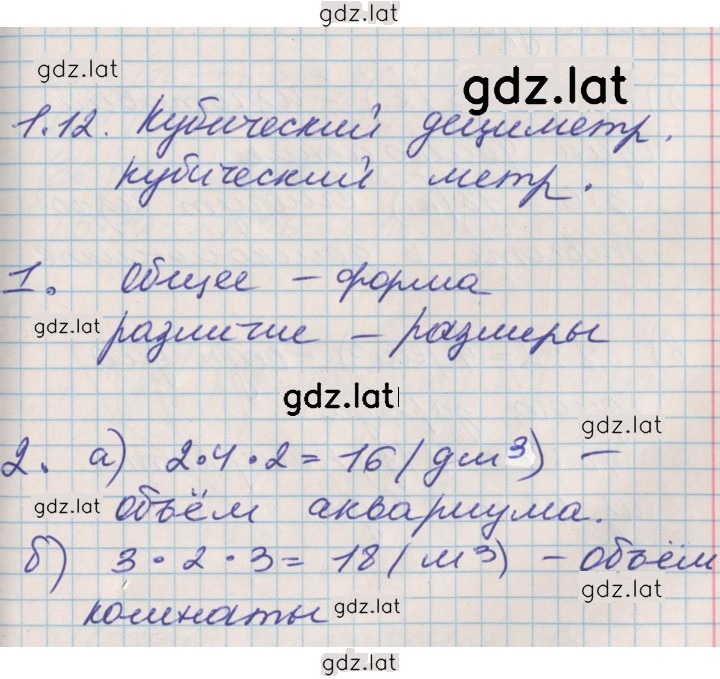 gdz.lat
gdz.lat
gdz.lat
1.12. Кубический дециметр.
Кубический метр.
1. Общее – форма
gdz.lat
различие – размеры
gdz.lat
gdz.lat
2. а) 2·4·2=16 (дм³) –
gdz.lat
объём аквариума.
б) 3·2·3=18 (м³) – объём
gdz.lat
комнаты
gdz.lat
gdz.lat